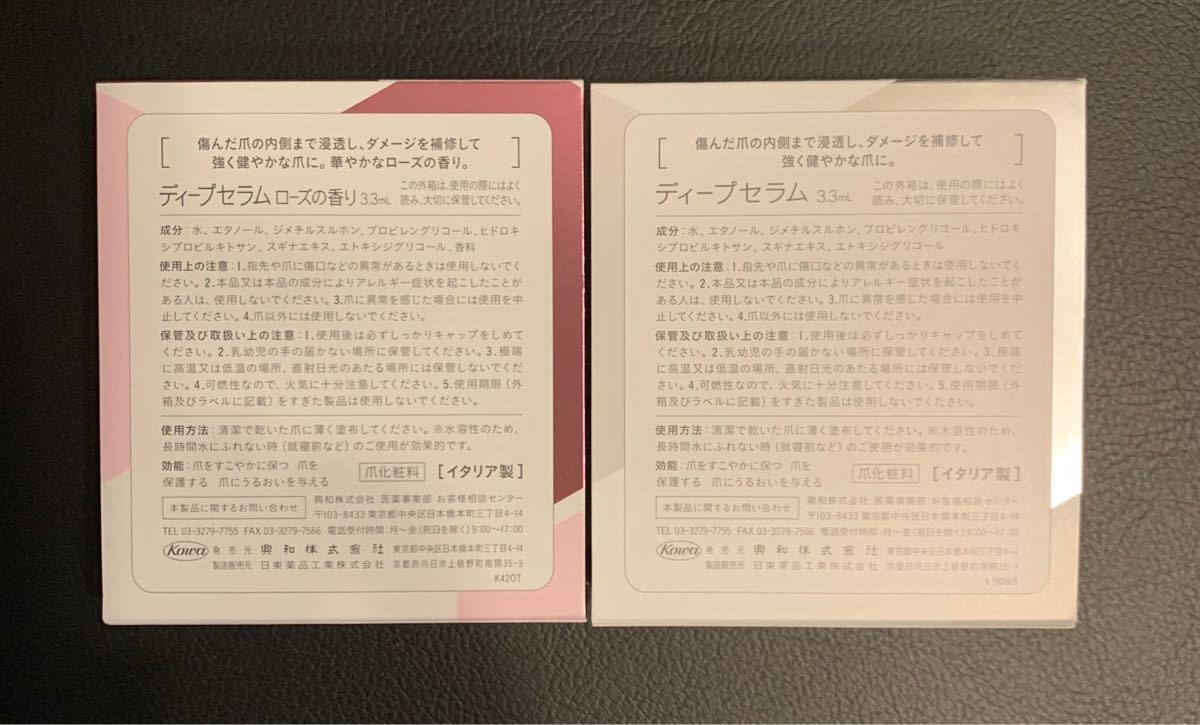 傷んだ爪の内側まで浸透し、ダメージを補修して
強く健やかな爪に。華やかなローズの香り。
ディープセラム ローズの香り 3.3mL
この外箱は、使用の際にはよく
読み、大切に保管してください。
成分：水、エタノール、ジメチルスルホン、プロピレングリコール、ヒドロキ
シプロピルキトサン、スギナエキス、エトキシジグリコール、香料
使用上の注意：1.指先や爪に傷口などの異常があるときは使用しないでく
ださい。2.本品又は本品の成分によりアレルギー症状を起こしたことが
ある人は、使用しないでください。3.爪に異常を感じた場合には使用を中
止してください。4.爪以外には使用しないでください。
保管及び取扱い上の注意：1.使用後は必ずしっかりキャップをしめて
ください。2.乳幼児の手の届かない場所に保管してください。3.極端
に高温又は低温の場所、直射日光のあたる場所には保管しないでくだ
さい。4.可燃性なので、火気に十分注意してください。5.使用期限（外
箱及びラベルに記載）をすぎた製品は使用しないでください。
使用方法：清潔で乾いた爪に薄く塗布してください。※水溶性のため、
長時間水にふれない時（就寝前など）のご使用が効果的です。
効能：爪をすこやかに保つ 爪を
保護する 爪にうるおいを与える
爪化粧料 [イタリア製]
本製品に関するお問い合わせ
興和株式会社 医薬事業部 お客様相談センター
〒103-8433 東京都中央区日本橋本町三丁目4-14
TEL 03-3279-7755 FAX 03-3279-7566 電話受付時間：月〜金（祝日を除く）9:00〜17:00
Kowa 発売元 興和株式会社 東京都中央区日本橋本町三丁目4-14
製造販売元 日東薬品工業株式会社 京都府向日市上植野町南開35-3
K420T
傷んだ爪の内側まで浸透し、ダメージを補修して
強く健やかな爪に。
ディープセラム 3.3mL
この外箱は、使用の際にはよく
読み、大切に保管してください。
成分：水、エタノール、ジメチルスルホン、プロピレングリコール、ヒドロキ
シプロピルキトサン、スギナエキス、エトキシジグリコール
使用上の注意：1.指先や爪に傷口などの異常があるときは使用しないでく
ださい。2.本品又は本品の成分によりアレルギー症状を起こしたことが
ある人は、使用しないでください。3.爪に異常を感じた場合には使用を中
止してください。4.爪以外には使用しないでください。
保管及び取扱い上の注意：1.使用後は必ずしっかりキャップをしめて
ください。2.乳幼児の手の届かない場所に保管してください。3.極端
に高温又は低温の場所、直射日光のあたる場所には保管しないでくだ
さい。4.可燃性なので、火気に十分注意してください。5.使用期限（外
箱及びラベルに記載）をすぎた製品は使用しないでください。
使用方法：清潔で乾いた爪に薄く塗布してください。※水溶性のため、
長時間水にふれない時（就寝前など）のご使用が効果的です。
効能：爪をすこやかに保つ 爪を
保護する 爪にうるおいを与える
爪化粧料 [イタリア製]
本製品に関するお問い合わせ
興和株式会社 医薬事業部 お客様相談センター
〒103-8433 東京都中央区日本橋本町三丁目4-14
TEL 03-3279-7755 FAX 03-3279-7566 電話受付時間：月〜金（祝日を除く）9:00〜17:00
Kowa 発売元 興和株式会社 東京都中央区日本橋本町三丁目4-14
製造販売元 日東薬品工業株式会社 京都府向日市上植野町南開35-3